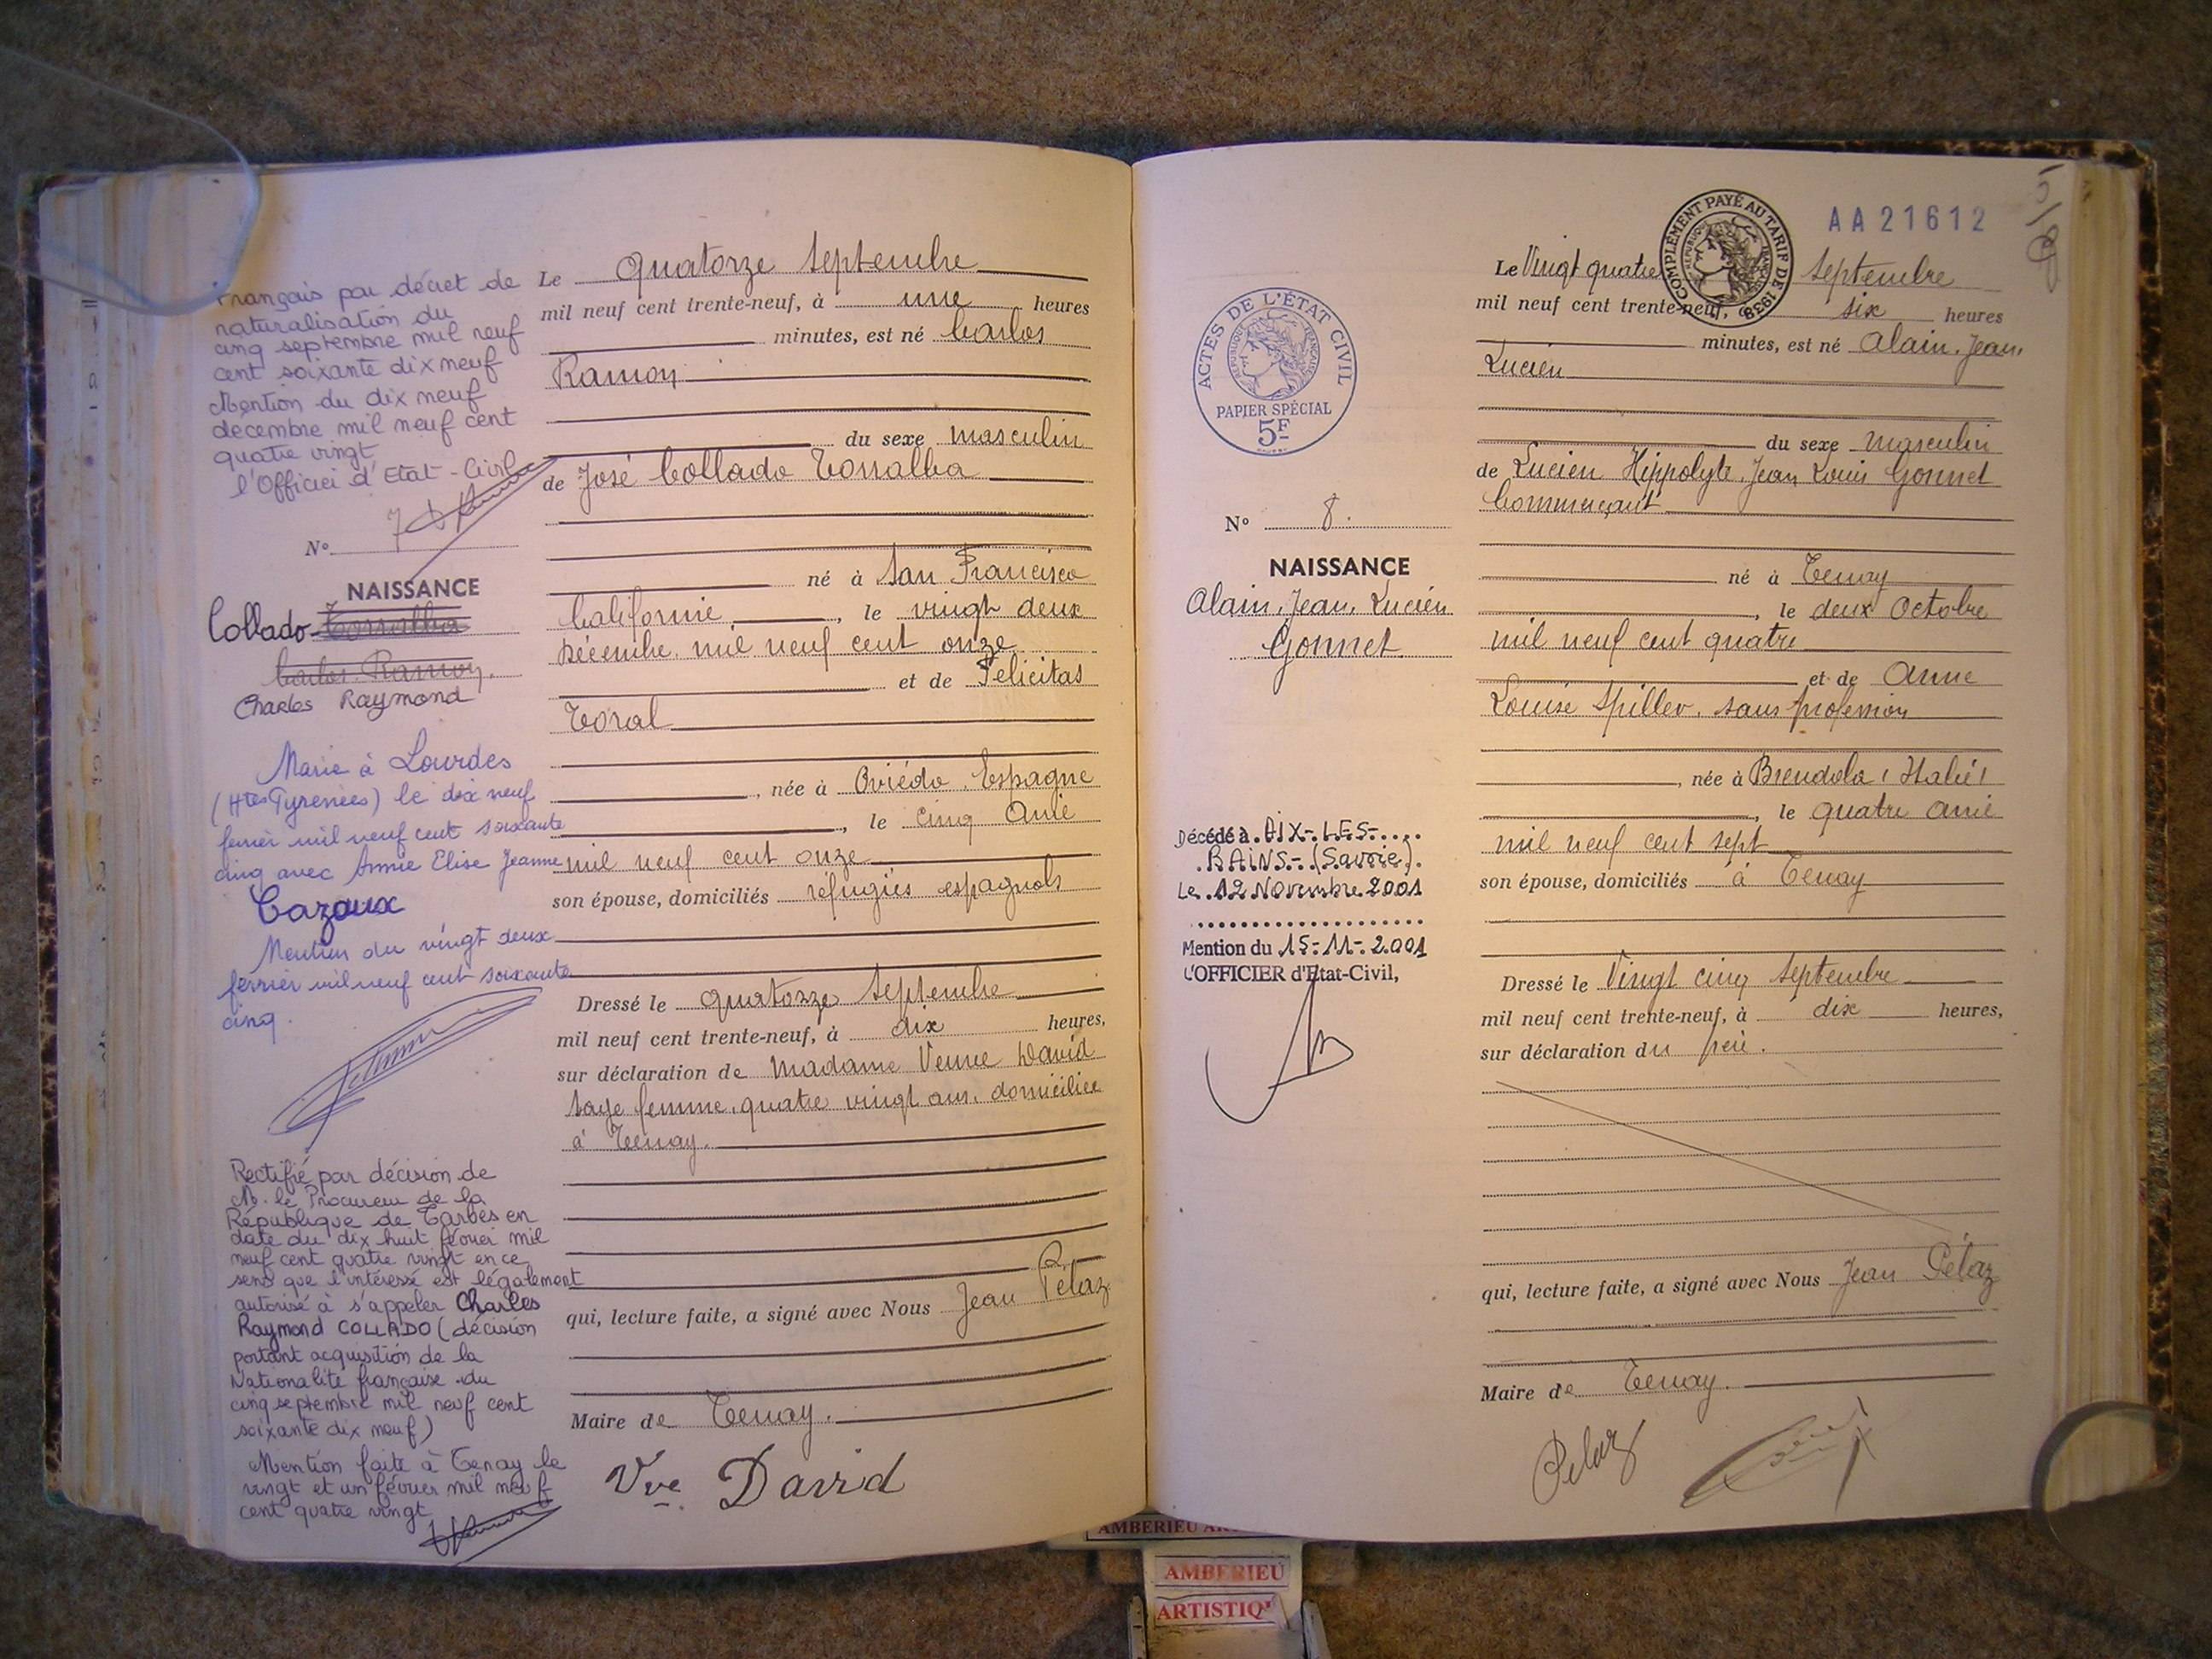 Français par décret de
naturalisation du
cinq septembre mil neuf
cent soixante dix neuf
Mention du dix neuf
décembre mil neuf cent
quatre vingt
l'Officier d'Etat-Civil
N° 7
NAISSANCE
Collado Torralba
Carlos Ramon.
Charles Raymond
Marié à Lourdes
(Htes Pyrénées) le dix neuf
février mil neuf cent soixante
cinq avec Annie Elise Jeanne
Cazaux
Mention du vingt deux
février mil neuf cent soixante
cinq.
Rectifié par décision de
M. le Procureur de la
République de Tarbes en
date du dix huit février mil
neuf cent quatre vingt en ce
sens que l'intéressé est légalement
autorisé à s'appeler Charles
Raymond COLLADO (décision
portant acquisition de la
Nationalité française du
cinq septembre mil neuf cent
soixante dix neuf)
Mention faite à Tenay le
vingt et un février mil neuf
cent quatre vingt
Le Quatorze Septembre
mil neuf cent trente-neuf, à une heures
minutes, est né Carlos
Ramon
du sexe masculin
de José Collado Torralba
né à San Francisco
Californie, le vingt deux
Décembre mil neuf cent onze
et de Felicitas
Toral
, née à Oviédo, Espagne
, le cinq Avril
mil neuf cent onze
son épouse, domiciliés réfugiés espagnols
Dressé le quatorze Septembre
mil neuf cent trente-neuf, à dix heures,
sur déclaration de Madame Veuve David
sage femme, quatre vingt ans, domiciliée
à Tenay.
qui, lecture faite, a signé avec Nous Jean Pélaz
Maire de Tenay.
Vve David
AA21612
COMPLÉMENT PAYÉ AU TARIF DE 1938
RÉPUBLIQUE FRANÇAISE
ACTES DE L'ÉTAT CIVIL
RÉPUBLIQUE FRANÇAISE
PAPIER SPÉCIAL
5F
N° 8.
NAISSANCE
Alain, Jean, Lucien
Gonnet
Décédé à AIX-LES-
BAINS-(Savoie).
Le 12 Novembre 2001
Mention du 15-11-2001
L'OFFICIER d'Etat-Civil,
Le Vingt quatre Septembre
mil neuf cent trente-neuf, à six heures
minutes, est né Alain, Jean,
Lucien
du sexe masculin
de Lucien Hippolyte, Jean Louis Gonnet
Commerçant
né à Tenay
, le deux Octobre
mil neuf cent quatre
et de Anne
Louise Spiller, sans profession
, née à Brendola (Italie)
, le quatre Avril
mil neuf cent sept
son épouse, domiciliés à Tenay
Dressé le Vingt cinq Septembre
mil neuf cent trente-neuf, à dix heures,
sur déclaration du père.
qui, lecture faite, a signé avec Nous Jean Pélaz
Maire de Tenay.
Pelaz
AMBERIEU
AMBERIEU
ARTISTIQ